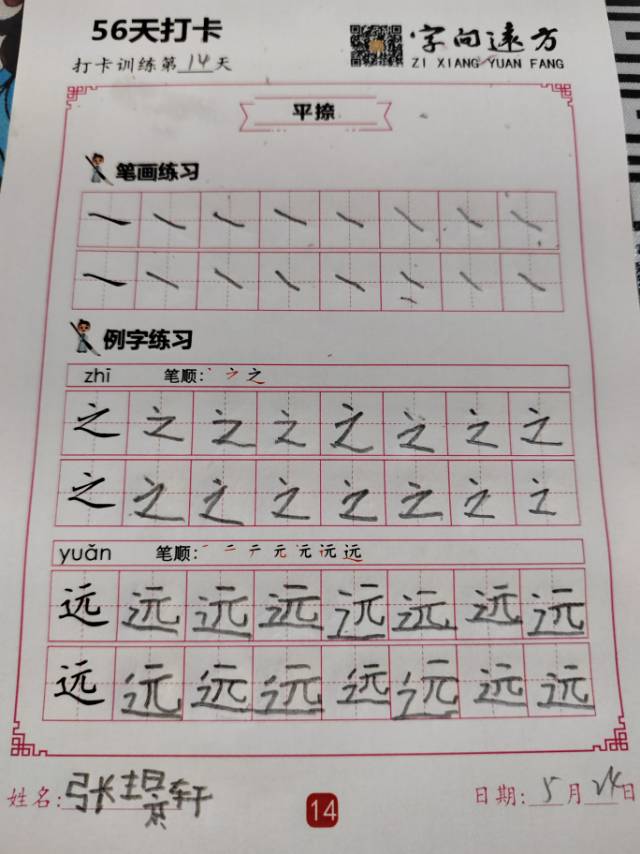 56天打卡
字问远方
打卡训练第14天
ZI XIANG YUAN FANG
平捺
笔画练习
㇏ ㇏ ㇏ ㇏ ㇏ ㇏ ㇏ ㇏
㇏ ㇏ ㇏ ㇏ ㇏ ㇏ ㇏ ㇏
例字练习
zhī 笔顺: 之
之 之 之 之 之 之 之 之
之 之 之 之 之 之 之 之
yuǎn 笔顺: 一 二 テ 元 远
远 远 远 远 远 远 远 远
远 远 远 远 远 远 远 远
姓名: 张璟轩
14
日期: 5月24日